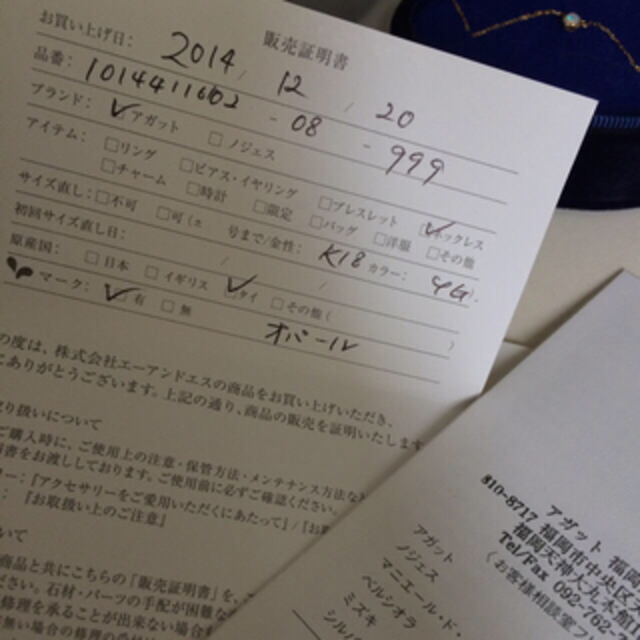 販売証明書
お買い上げ日: 2014 / 12 / 20
品番: 1014411602 - 08 - 999
ブランド: ✓アガット □ノジェス
アイテム: □リング □ピアス・イヤリング □ブレスレット ✓ネックレス
□チャーム □時計 □限定 □バッグ □洋服 □その他
サイズ直し: □不可 □可(± 号まで/金性: K18 カラー: YG).
初回サイズ直し日: / /
原産国: □日本 □イギリス ✓タイ □その他( )
マーク: ✓有 □無
オパール
の度は、株式会社エーアンドエスの商品をお買い上げいただき、
にありがとうございます。上記の通り、商品の販売を証明いたします
り扱いについて
ご購入時に、ご使用上の注意・保管方法・メンテナンス方法な
書をお渡ししております。ご使用前に必ずご確認ください。
:「アクセサリーをご愛用いただくにあたって」/「お
「お取扱い上のご注意」
いて
商品と共にこちらの「販売証明書」を、
さい。石材・パーツの手配が困難な
修理を承ることが出来ない場合
無い場合の修理の受
アガット 福岡
810-8717 福岡市中央区
Tel/Fax 092-7
(お客様相談室フ
アガット
ノジェス
マニエール・ド・
ベルシオラ
ミズキ
シル